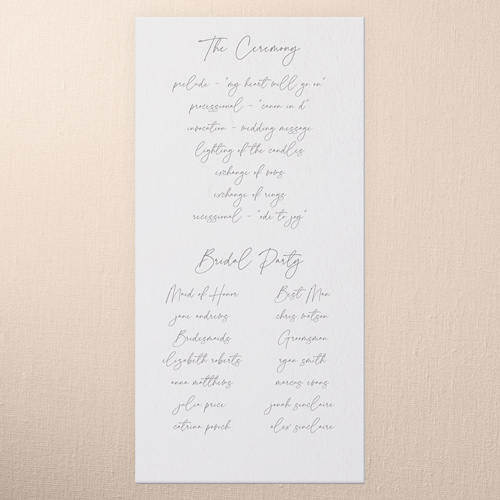 The Ceremony
prelude - "my heart will go on"
processional - "canon in d"
invocation - wedding message
lighting of the candles
exchange of vows
exchange of rings
recessional - "ode to joy"
Bridal Party
Maid of Honor Best Man
jane andrews chris watson
Bridesmaids Groomsman
elizabeth roberts ryan smith
anna matthews marcus evans
julia price jonah sinclaire
catrina alex sinclaire